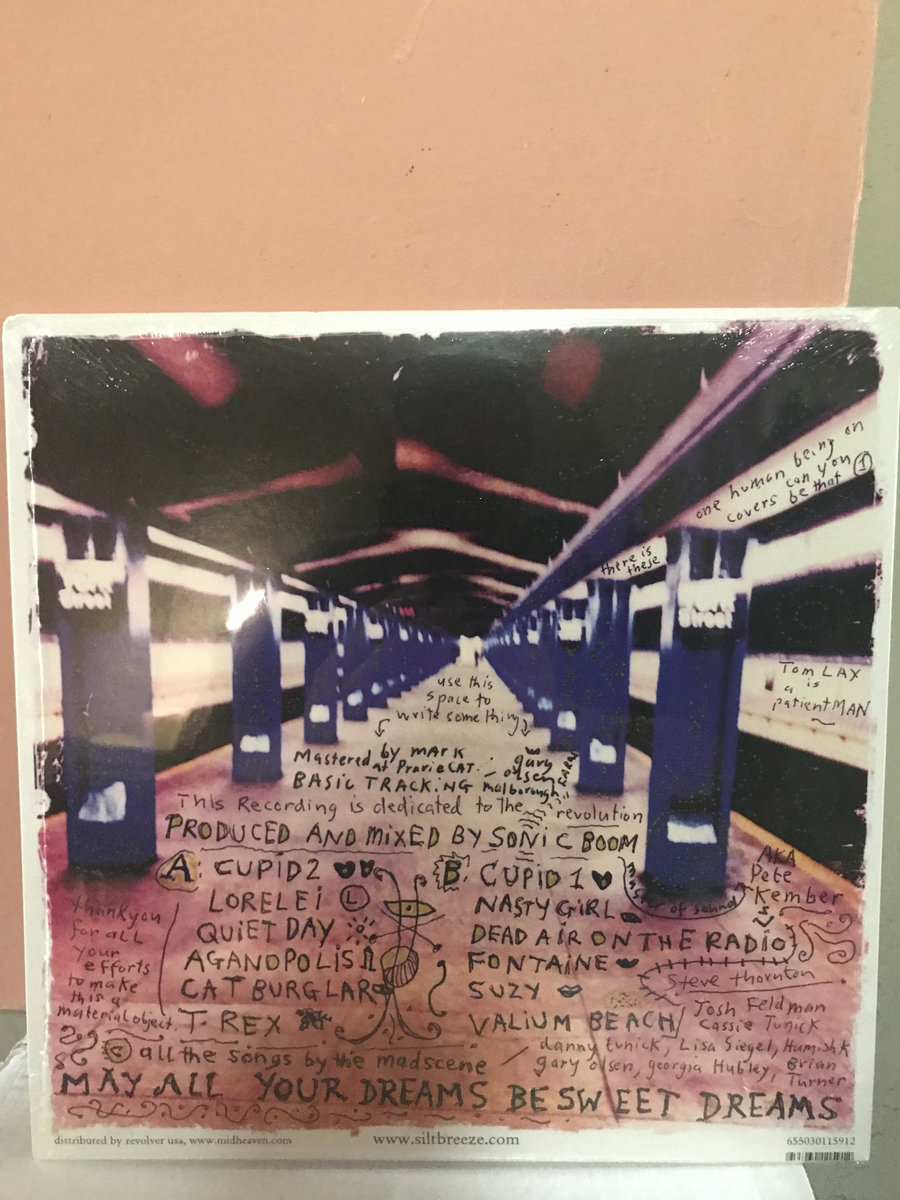 one human being on
covers can you
be that 1
there is
these
Street
Street
Tom LAX
is
a
patient MAN
use this
space to
write something
Mastered by mark
at PrarieCAT.
gary
olsen
BASIC TRACKING malborough
This Recording is dedicated to The revolution
PRODUCED AND MIXED BY SONIC BOOM
master of sound
AKA
Pete
Kember
A: CUPID 2
LORELEI L
QUIET DAY
AGANOPOLIS
CAT BURGLAR
T. REX
B: CUPID 1
NASTY GIRL
DEAD AIR ON THE RADIO
FONTAINE
SUZY
VALIUM BEACH
thankyou
for all
your
efforts
to make
this a
material object.
Steve thornton
Josh Feldman
Cassie Tunick
danny tunick, Lisa Siegel, Hamish K
gary olsen, georgia Hubley, Brian
Turner
© all the songs by the madscene
MAY ALL YOUR DREAMS BE SWEET DREAMS
distributed by revolver usa, www.midheaven.com
www.siltbreeze.com
655030115912